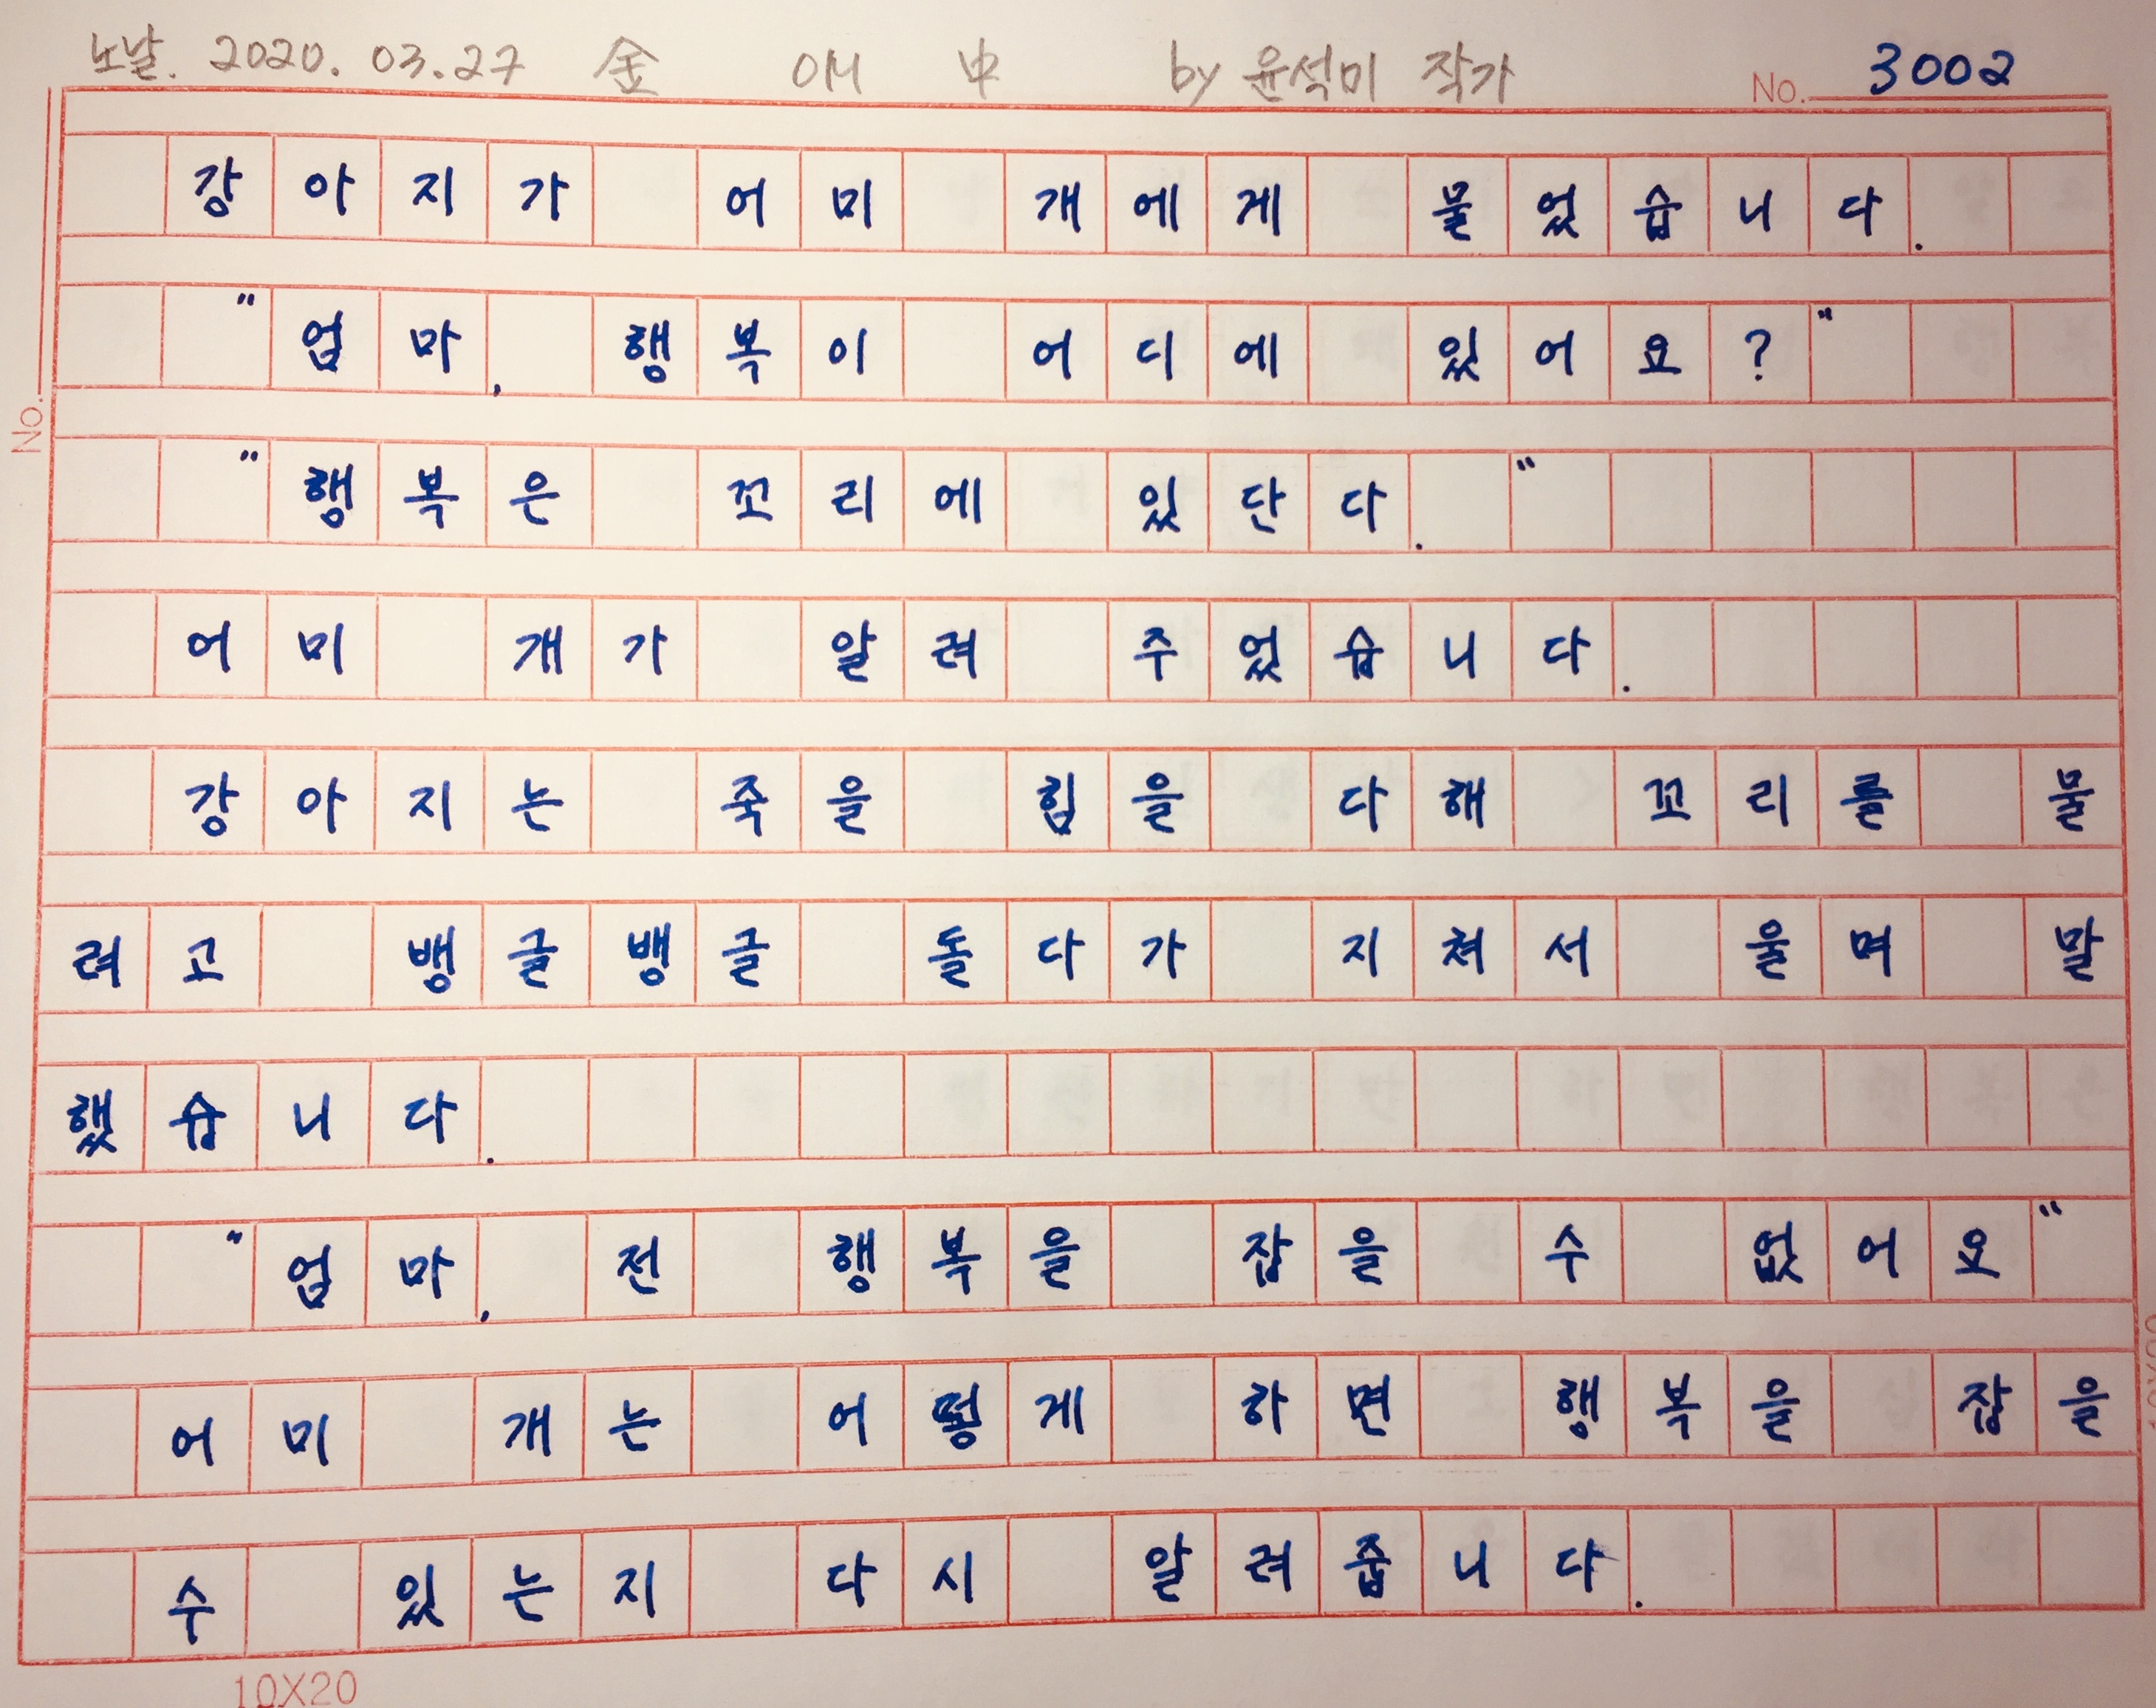 노날. 2020. 03.27 金 매 中 by 윤석미 작가 No. 3002
강아지가 어미 개에게 물었습니다.
"엄마, 행복이 어디에 있어요?"
"행복은 꼬리에 있단다."
어미 개가 알려 주었습니다.
강아지는 죽을 힘을 다해 꼬리를 물
려고 뱅글뱅글 돌다가 지쳐서 울며 말
했습니다.
"엄마, 전 행복을 잡을 수 없어요"
어미 개는 어떻게 하면 행복을 잡을
수 있는지 다시 알려줍니다.
No.
10X20